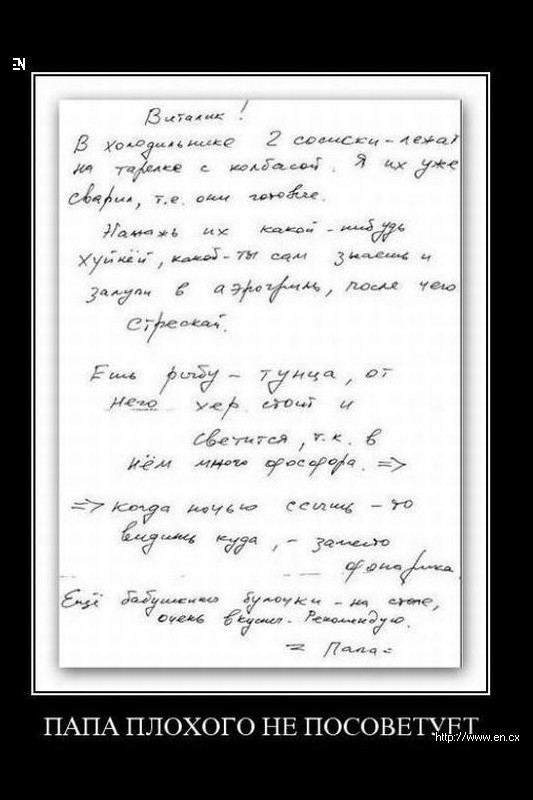 EN
Виталик!
В холодильнике 2 сосиски - лежат
на тарелке с колбасой. Я их уже
сварил, т.е. они готовые.
Намажь их какой-нибудь
хуйнёй, какой-ты сам знаешь и
залупи в аэрогриль, после чего
стрескай.
Ешь рыбу - тунца, от
него хер стоит и
светится, т.к. в
нём много фосфора. =>
=> когда ночью ссышь - то
видишь куда, - заместо
фонарика.
Ещё бабушкины булочки - на столе,
очень вкусные. Рекомендую.
= Папа =
ПАПА ПЛОХОГО НЕ ПОСОВЕТУЕТ
http://www.en.cx